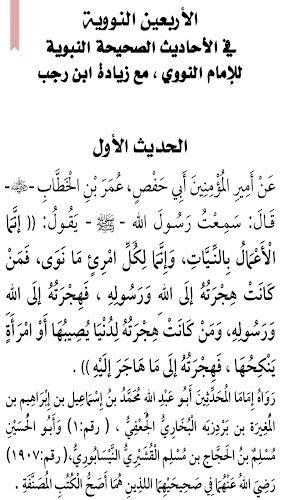 الأربعين النووية
في الأحاديث الصحيحة النبوية
للإمام النووي ، مع زيادة ابن رجب
الحديث الأول
عَنْ أَمِيرِ المُؤْمِنِينَ أَبِي حَفْصٍ، عُمَرَ بْنِ الْخَطَّابِ -ﷺ-
قَالَ: سَمِعْتُ رَسُولَ الله - ﷺ - يَقُولُ: (( إِنَّمَا
الْأَعْمَالُ بِالنِّيَّاتِ، وَإِنَّمَا لِكُلِّ امْرِئٍ مَا نَوَى، فَمَنْ
كَانَتْ هِجْرَتُهُ إِلَى اللهِ وَرَسُولِهِ ، فَهِجْرَتُهُ إِلَى اللهِ
وَرَسُولِهِ، وَمَنْ كَانَتْ هِجْرَتُهُ لِدُنْيَا يُصِيبُهَا أَوْ امْرَأَةٍ
يَنْكِحُهَا ، فَهِجْرَتُهُ إِلَى مَا هَاجَرَ إِلَيْهِ )) .
رَوَاهُ إِمَامَا المُحَدِّثِينَ أَبُو عَبْدِ الله مُحَمَّدُ بنُ إِسْمَاعِيل بن إِبْرَاهِيم بن
المُغِيرَة بن بَرْدِزبَه الْبُخَارِيُّ الجُعْفِيُّ ، ( رقم:١) وَأَبُو الحُسَيْنِ
مُسْلِمُ بنُ الحَجَّاج بن مُسْلِم الْقُشَيْرِيُّ النَّيْسَابُورِيُّ،(رقم:١٩٠٧)
رَضِيَ اللهُ عَنْهُمَا فِي صَحِيحَيْهِمَا اللذينِ هُمَا أَصَحُّ الْكُتُبِ المُصَنَّفَةِ .